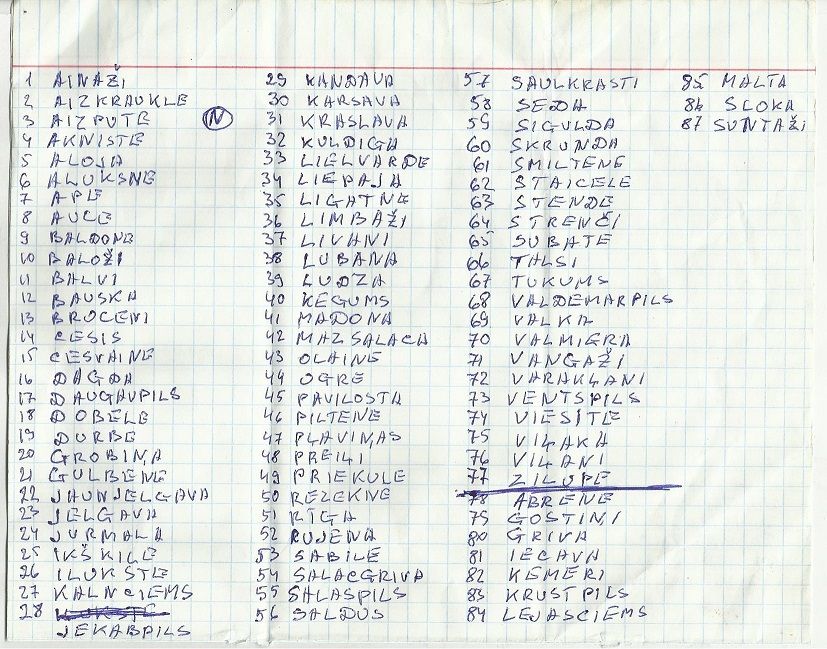 1 AINAŽI
2 AIZKRAUKLE
3 AIZPUTE N
4 AKNISTE
5 ALOJA
6 ALUKSNE
7 APE
8 AUCE
9 BALDONE
10 BALOŽI
11 BALVI
12 BAUSKA
13 BROCENI
14 CESIS
15 CESVAINE
16 DAGDA
17 DAUGAVPILS
18 DOBELE
19 DURBE
20 GROBIŅA
21 GULBENE
22 JAUNJELGAVA
23 JELGAVA
24 JURMALA
25 IKŠKILE
26 ILUKSTE
27 KALNCIEMS
28
JEKABPILS
29 KANDAVA
30 KARSAVA
31 KRASLAVA
32 KULDIGA
33 LIELVARDE
34 LIEPAJA
35 LIGATNE
36 LIMBAŽI
37 LIVANI
38 LUBANA
39 LUDZA
40 KEGUMS
41 MADONA
42 MAZSALACA
43 OLAINE
44 OGRE
45 PAVILOSTA
46 PILTENE
47 PĻAVIŅAS
48 PREIĻI
49 PRIEKULE
50 REZEKNE
51 RIGA
52 RUJENA
53 SABILE
54 SALACGRIVA
55 SALASPILS
56 SALDUS
57 SAULKRASTI
58 SEDA
59 SIGULDA
60 SKRUNDA
61 SMILTENE
62 STAICELE
63 STENDE
64 STRENČI
65 SUBATE
66 TALSI
67 TUKUMS
68 VALDEMARPILS
69 VALKA
70 VALMIGRA
71 VANGAŽI
72 VARAKĻANI
73 VENTSPILS
74 VIESITE
75 VIĻAKA
76 VIĻANI
77 ZILUPE
78 ABRENE
79 GOSTIŅI
80 GRIVA
81 IECAVA
82 ĶEMERI
83 KRUSTPILS
84 LEJASCIEMS
85 MALTA
86 SLOKA
87 SUNTAŽI